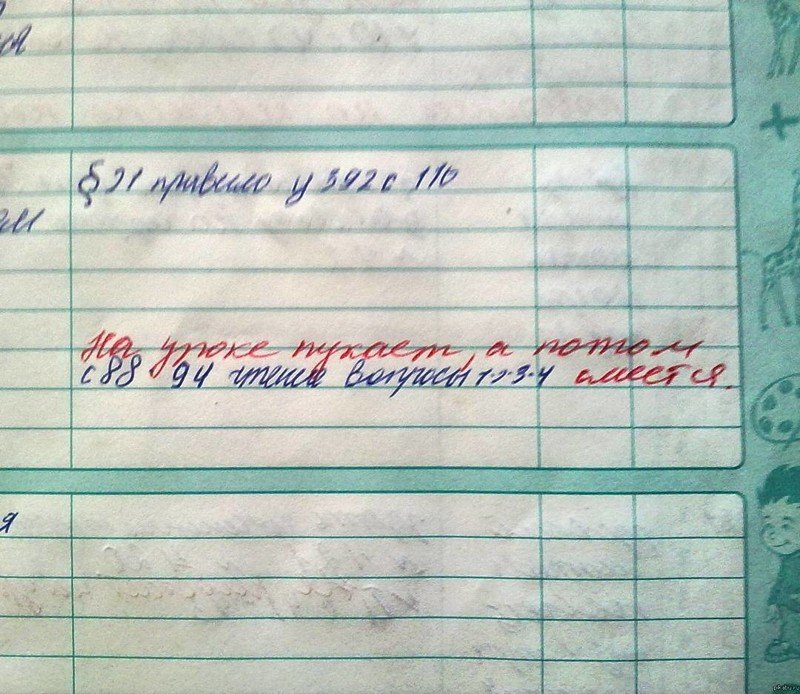 ся
§ 21 правило у 392 с 116
ам
На уроке пукает, а потом
с 88 94 чтение вопросы 1-2-3-4 смеется.
я